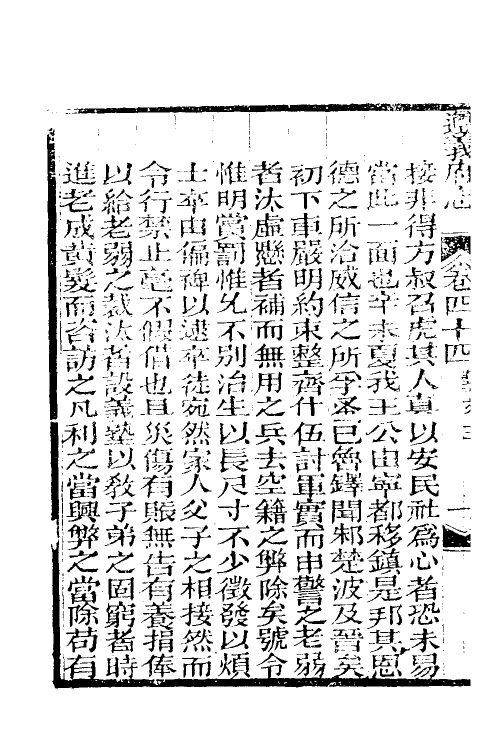 遵義府志 卷四十四 藝文三
接非得方叔召虎其人真以安民社爲心者恐未易
當此一面也辛未夏我王公由寧都移鎮是邦其恩
德之所洽威信之所孚蚤已魯鐸聞邾楚波及晉矣
初下車嚴明約束整齊什伍討軍實而申警之老弱
者汰虛懸者補而無用之兵去空籍之弊除矣號令
惟明賞罰惟允不別治生以長尺寸不少徵發以煩
士卒由偏裨以逮卒徒宛然家人父子之相接然而
令行禁止毫不假借也且災傷有賑無告有養捐俸
以給老弱之裁汰者設義塾以敎子弟之固窮者時
進老成黃髮而咨訪之凡利之當興弊之當除苟有